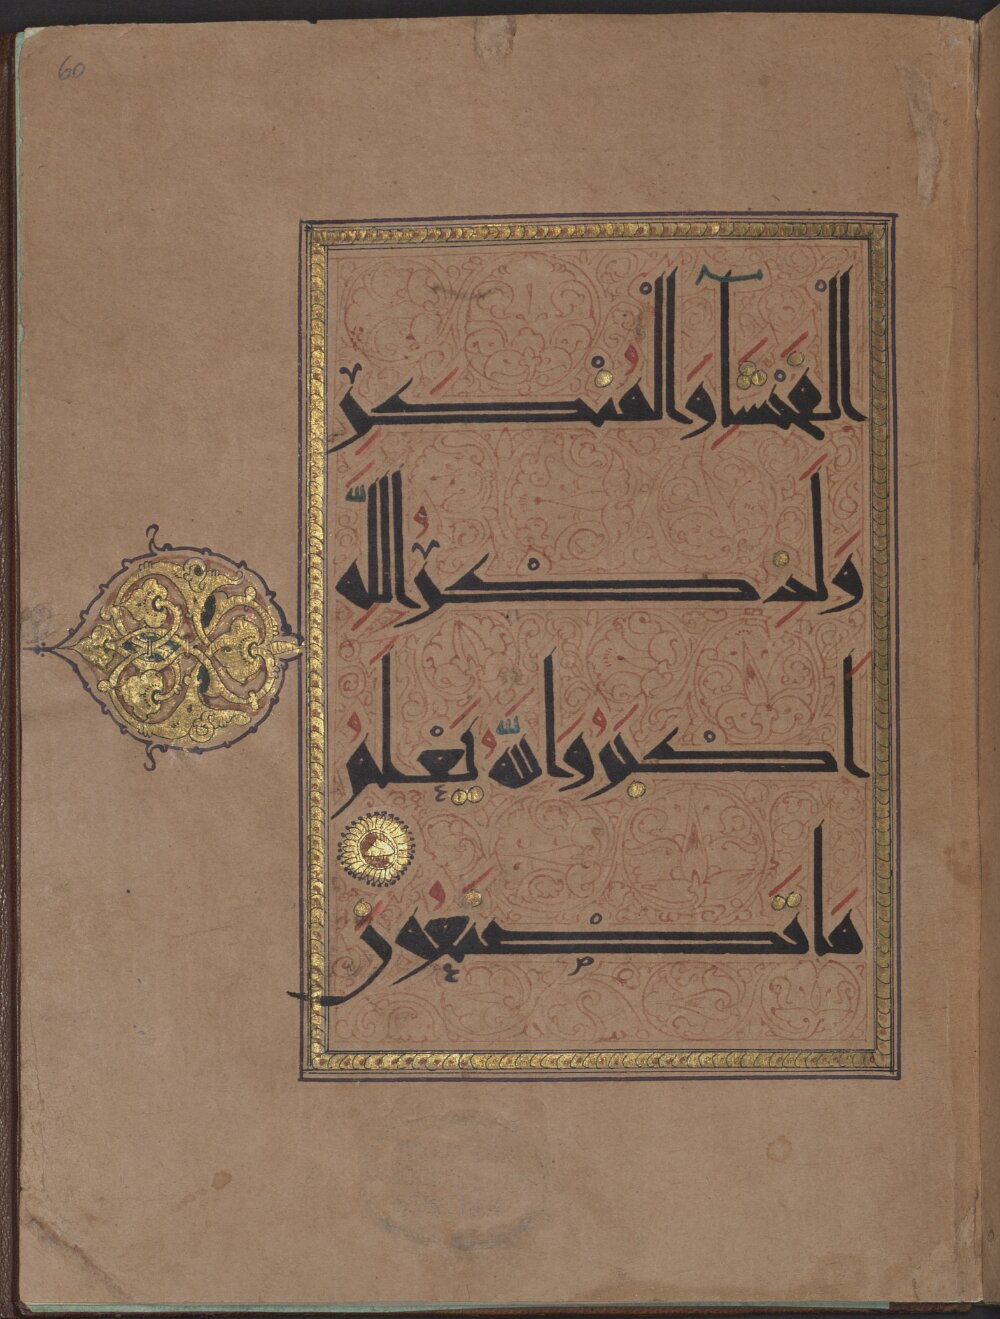 60
الفحشا والمنكر
ولذكر الله
اكبر والله يعلم
ما تصنعون